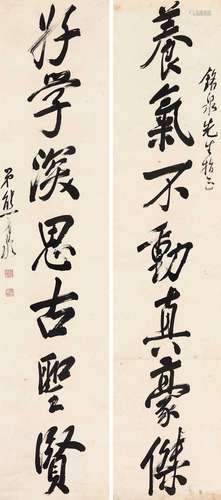 銘泉先生指正
養氣不動真豪傑
好学深思古聖賢
弟熊